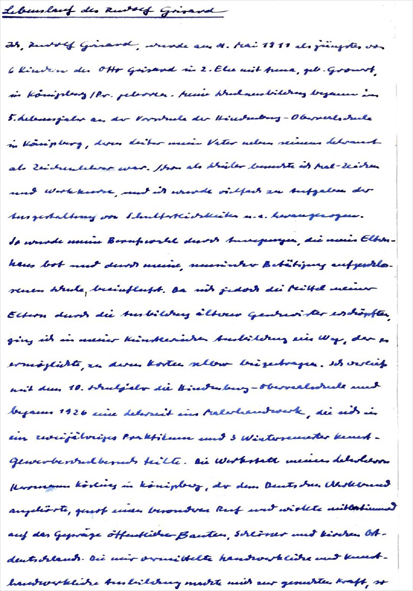 Lebenslauf des Rudolf Grisard
Ich, Rudolf Grisard, wurde am 4. Mai 1911 als jüngstes von
6 Kindern des Otto Grisard in 2. Ehe mit Anna, geb.
in Königsberg/Pr. geboren. Meine Schulausbildung begann im
5. Lebensjahr an der Vorschule der Hindenburg-Oberrealschule
in Königsberg, deren Leiter mein Vater neben seinem Lehramt
als Zeichenlehrer war. Schon als Schüler besuchte ich Mal-Zeichen
und Werkkurse, und ich wurde vielfach zu Aufgaben der
Ausgestaltung von Schulfestlichkeiten u.a. herangezogen.
So wurde meine Berufswahl durch Anregungen, die mein Eltern-
haus bot und durch meine, musischer Betätigung aufgeschlos-
senen Schule, beeinflußt. Da sich jedoch die Mittel meiner
Eltern durch die Ausbildung älterer Geschwister erschöpften,
ging ich in meiner künstlerischen Ausbildung ein Weg, der es
ermöglichte, zu deren Kosten selber beizutragen. Ich verließ
mit dem 10. Schuljahr die Hindenburg-Oberrealschule und
begann 1926 eine Lehrzeit im Malerhandwerk, die sich in
ein zweijähriges Praktikum und 3 Wintersemester Kunst-
Gewerbeschulbesuch teilte. Die Werkstatt meines Lehrherrn
Hermann in Königsberg, der dem Deutschen Werkbund
angehörte, genoß einen besonderen Ruf und wirkte mitbestimmend
auf das Gepräge öffentlicher Bauten, Schlösser und Kirchen Ost-
deutschlands. Die mir vermittelte handwerkliche und kunst-
handwerkliche Ausbildung machte mich zur gesuchten Kraft, so